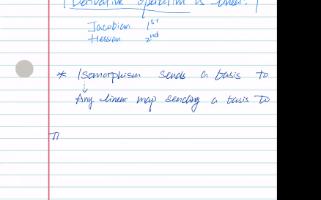 Derivative operation is linear.
Jacobian 1st
Hessian 2nd
* Isomorphism sends a basis to
Any linear map sending a basis to